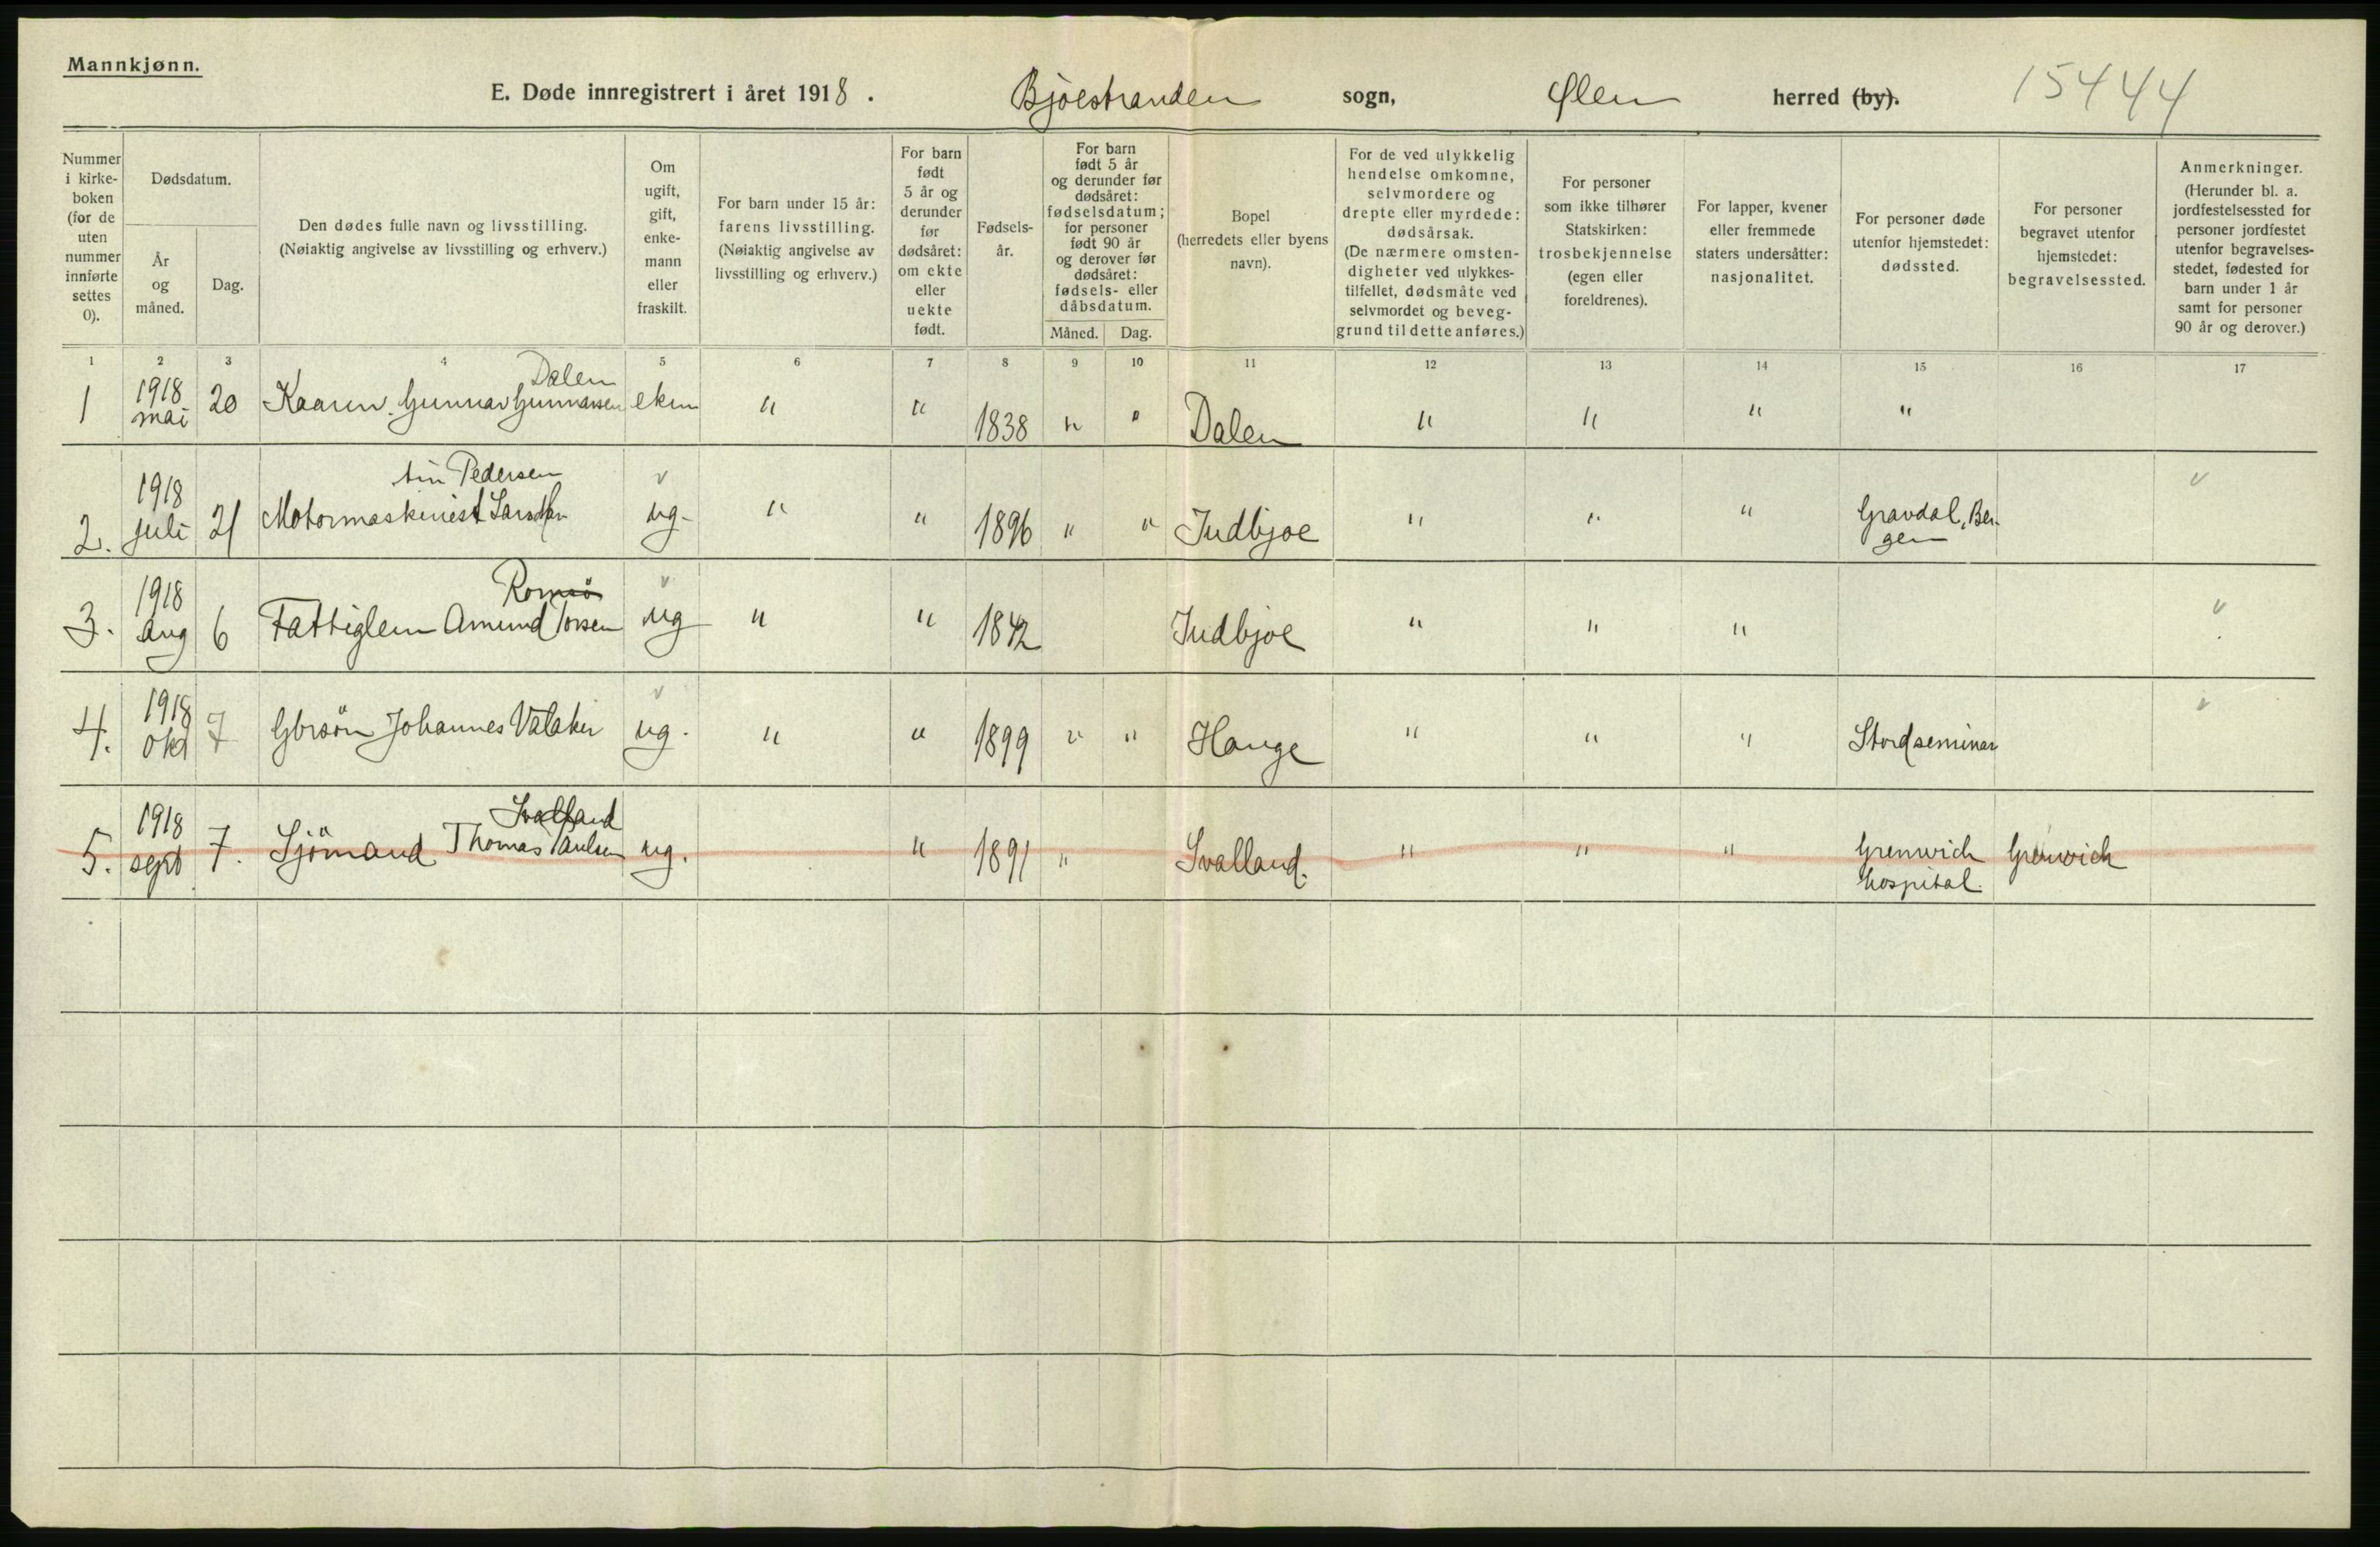 Mannkjønn.
E. Døde innregistrert i året 1918. Bjoestranden sogn, Ølen herred (by). 15444
Nummer i kirkeboken (for de uten nummer innførte settes 0).
Dødsdatum.
År og måned.
Dag.
Den dødes fulle navn og livsstilling.
(Nøiaktig angivelse av livsstilling og erhverv.)
Om ugift, gift, enkemann eller fraskilt.
For barn under 15 år: farens livsstilling.
(Nøiaktig angivelse av livsstilling og erhverv.)
For barn født 5 år og derunder før dødsåret: om ekte eller uekte født.
Fødselsår.
For barn født 5 år og derunder før dødsåret: fødselsdatum; for personer født 90 år og derover før dødsåret: fødsels- eller dåbsdatum.
Måned. Dag.
Bopel (herredets eller byens navn).
For de ved ulykkelig hendelse omkomne, selvmordere og drepte eller myrdede: dødsårsak.
(De nærmere omstendigheter ved ulykkestilfellet, dødsmåte ved selvmordet og beveggrund til dette anføres.)
For personer som ikke tilhører Statskirken: trosbekjennelse (egen eller foreldrenes).
For lapper, kvener eller fremmede staters undersåtter: nasjonalitet.
For personer døde utenfor hjemstedet: dødssted.
For personer begravet utenfor hjemstedet: begravelsessted.
Anmerkninger.
(Herunder bl. a. jordfestelsessted for personer jordfestet utenfor begravelsesstedet, fødested for barn under 1 år samt for personer 90 år og derover.)
1 2 3 4 5 6 7 8 9 10 11 12 13 14 15 16 17
Dalen
1 1918 mai 20 Gunnar Gunnarsen ekm " " 1838 " " Dalen " " " "
Pedersen
2. 1918 juli 21 Motormaskinist ug. " " 1896 " " Indbjoe " " " Gravdal, Bergen
Romsö
3. 1918 aug 6 Fattiglem Amund ug " " 1842 Indbjoe " " "
4. 1918 okt 7 Gbrsön Johannes Valaker ug. " " 1899 " " Hauge " " " Stordseminar
Svalland
5. 1918 sept 7. Sjömand Thomas Paulsen ug. " 1891 " Svalland. " " " Grenwich hospital. Grenwich